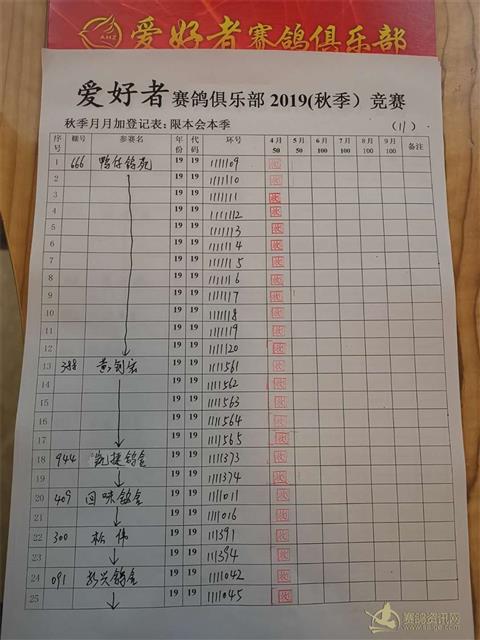 AHZ
爱好者赛鸽俱乐部
爱好者赛鸽俱乐部2019(秋季）竞赛
秋季月月加登记表：限本会本季 （11）
序号 棚号 参赛名 年份 代码 环号 4月50 5月50 6月100 7月100 8月100 9月100 备注
1 666 鸭仔鸽苑 19 19 1111109 收
2 19 19 1111110 收
3 19 19 1111111 收
4 19 19 1111112 收
5 19 19 1111113 收
6 19 19 1111114 收
7 19 19 1111115 收
8 19 19 1111116 收
9 19 19 1111117 收
10 19 19 1111118 收
11 19 19 1111119 收
12 19 19 1111120 收
13 388 黄剑宏 19 19 1111561 收
14 19 19 1111562 收
15 19 19 1111563 收
16 19 19 1111564 收
17 19 19 1111565 收
18 944 凯捷鸽舍 19 19 1111373 收
19 19 19 1111374 收
20 409 回味鸽舍 19 19 1111011 收
21 19 19 1111016 收
22 300 伟 19 19 1111391 收
23 19 19 1111394 收
24 091 兴鸽舍 19 19 1111042 收
25 19 19 1111045 收
赛鸽资讯网